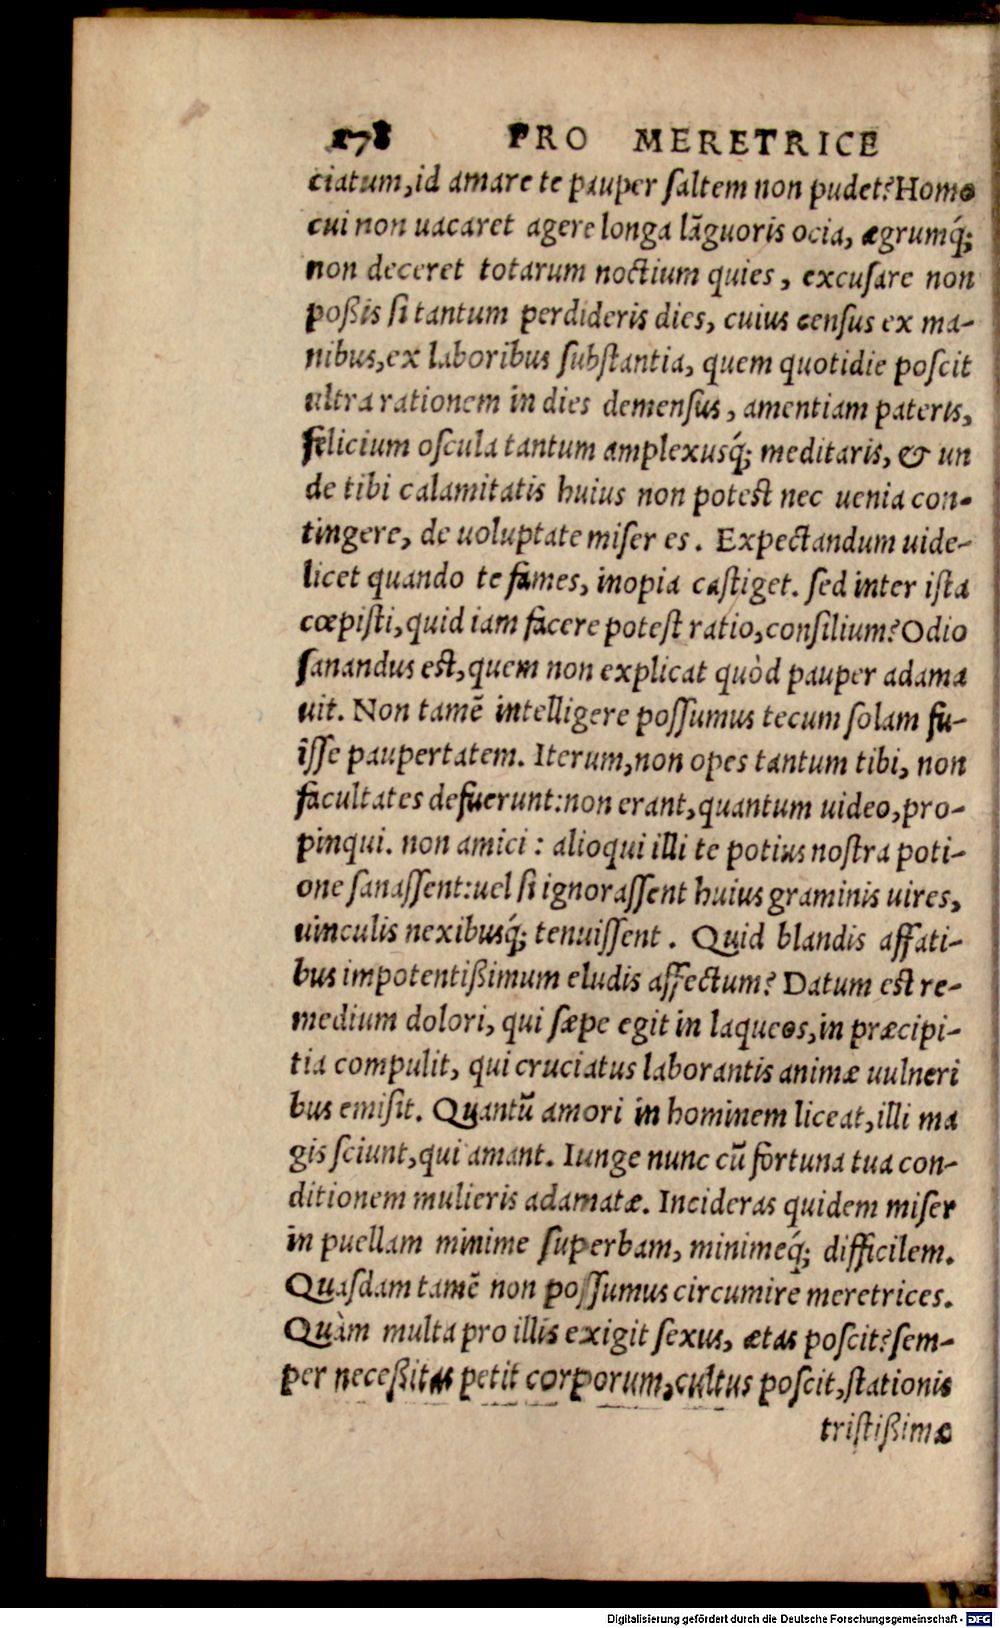 178 PRO MERETRICE
ciatum, id amare te pauper ſaltem non pudet? Homo
cui non uacaret agere longa lãguoris ocia, ægrumq́;
non deceret totarum noctium quies, excuſare non
poßis ſi tantum perdideris dies, cuius cenſus ex ma-
nibus, ex laboribus ſubſtantia, quem quotidie poſcit
ultra rationem in dies demenſus, amentiam pateris,
felicium oſcula tantum amplexusq́; meditaris, & un
de tibi calamitatis huius non poteſt nec uenia con-
tingere, de uoluptate miſer es. Expectandum uide-
licet quando te fames, inopia caſtiget. ſed inter iſta
cœpiſti, quid iam facere poteſt ratio, conſilium? Odio
ſanandus eſt, quem non explicat quòd pauper adama
uit. Non tamẽ intelligere poſſumus tecum ſolam fu-
iſſe paupertatem. Iterum, non opes tantum tibi, non
facultates defuerunt: non erant, quantum uideo, pro-
pinqui. non amici: alioqui illi te potius noſtra poti-
one ſanaſſent: uel ſi ignoraſſent huius graminis uires,
uinculis nexibusq́; tenuiſſent. Quid blandis affati-
bus impotentißimum eludis affectum? Datum eſt re-
medium dolori, qui ſæpe egit in laqueos, in præcipi-
tia compulit, qui cruciatus laborantis animæ uulneri
bus emiſit. Quantũ amori in hominem liceat, illi ma
gis ſciunt, qui amant. Iunge nunc cũ fortuna tua con-
ditionem mulieris adamatæ. Incideras quidem miſer
in puellam minime ſuperbam, minimeq́; difficilem.
Quaſdam tamẽ non poſſumus circumire meretrices.
Quàm multa pro illis exigit ſexus, ætas poſcit? ſem-
per neceßitas petit corporum, cultus poſcit, ſtationis
triſtißimæ
Digitalisierung gefördert durch die Deutsche Forschungsgemeinschaft - DFG